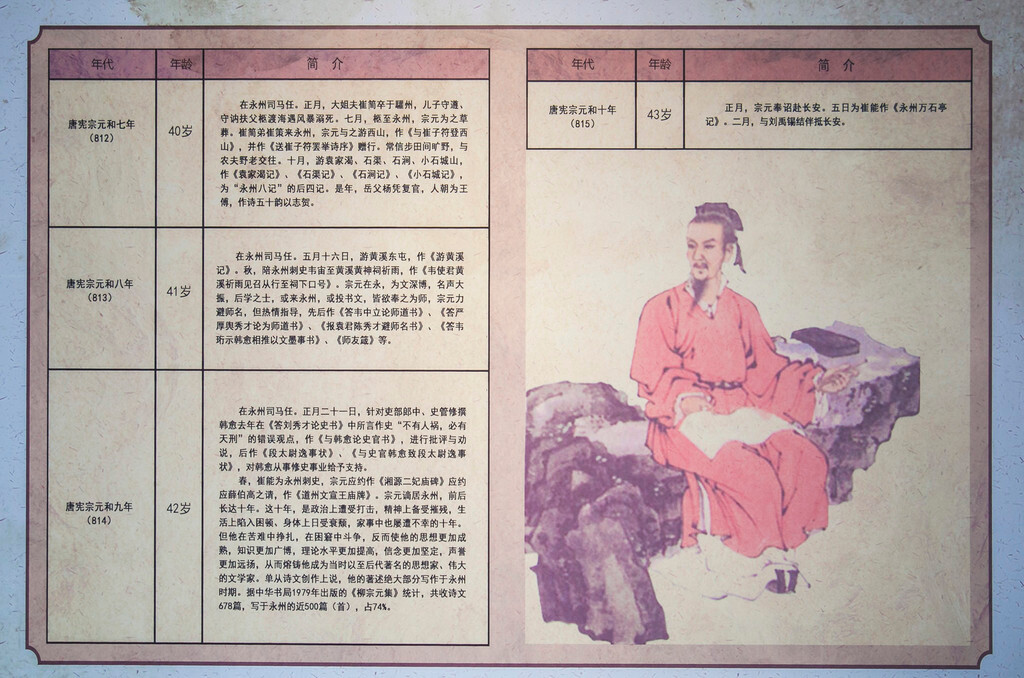 年代 年龄 简 介
唐宪宗元和七年
（812）
40岁
在永州司马任。正月，大姐夫崔简卒于驩州，儿子守遵、
守讷扶父柩渡海遇风暴溺死。七月，柩至永州，宗元为之草
葬。崔简弟崔策来永州，宗元与之游西山，作《与崔子符登西
山》，并作《送崔子符罢举诗序》赠行。常信步田间旷野，与
农夫野老交往。十月，游袁家渴、石渠、石涧、小石城山，
作《袁家渴记》、《石渠记》、《石涧记》、《小石城记》，
为“永州八记”的后四记。是年，岳父杨凭复官，人朝为王
傅，作诗五十韵以志贺。
唐宪宗元和八年
（813）
41岁
在永州司马任。五月十六日，游黄溪东屯，作《游黄溪
记》。秋，陪永州刺史韦宙至黄溪黄神祠祈雨，作《韦使君黄
溪祈雨见召从行至祠下口号》。宗元在永，为文深博，名声大
振，后学之士，或来永州，或投书文，皆欲奉之为师，宗元力
避师名，但热情指导，先后作《答韦中立论师道书》、《答严
厚舆秀才论为师道书》、《报袁君陈秀才避师名书》、《答韦
珩示韩愈相推以文墨事书》、《师友箴》等。
唐宪宗元和九年
（814）
42岁
在永州司马任。正月二十一日，针对吏部郎中、史管修撰
韩愈去年在《答刘秀才论史书》中所言作史“不有人祸，必有
天刑”的错误观点，作《与韩愈论史官书》，进行批评与劝
说，后作《段太尉逸事状》、《与史官韩愈致段太尉逸事
状》，对韩愈从事修史事业给予支持。
春，崔能为永州刺史，宗元应约作《湘源二妃庙碑》应约
应薛伯高之请，作《道州文宣王庙牌》。宗元谪居永州，前后
长达十年。这十年，是政治上遭受打击，精神上备受摧残，生
活上陷入困顿，身体上日受衰颓，家事中也屡遭不幸的十年。
但他在苦难中挣扎，在困窘中斗争，反而使他的思想更加成
熟，知识更加广博，理论水平更加提高，信念更加坚定，声誉
更加远扬，从而熔铸他成为当时以至后代著名的思想家、伟大
的文学家。单从诗文创作上说，他的著述绝大部分写作于永州
时期。据中华书局1979年出版的《柳宗元集》统计，共收诗文
678篇，写于永州的近500篇（首），占74%。
年代 年龄 简 介
唐宪宗元和十年
（815）
43岁
正月，宗元奉诏赴长安。五日为崔能作《永州万石亭
记》。二月，与刘禹锡结伴抵长安。